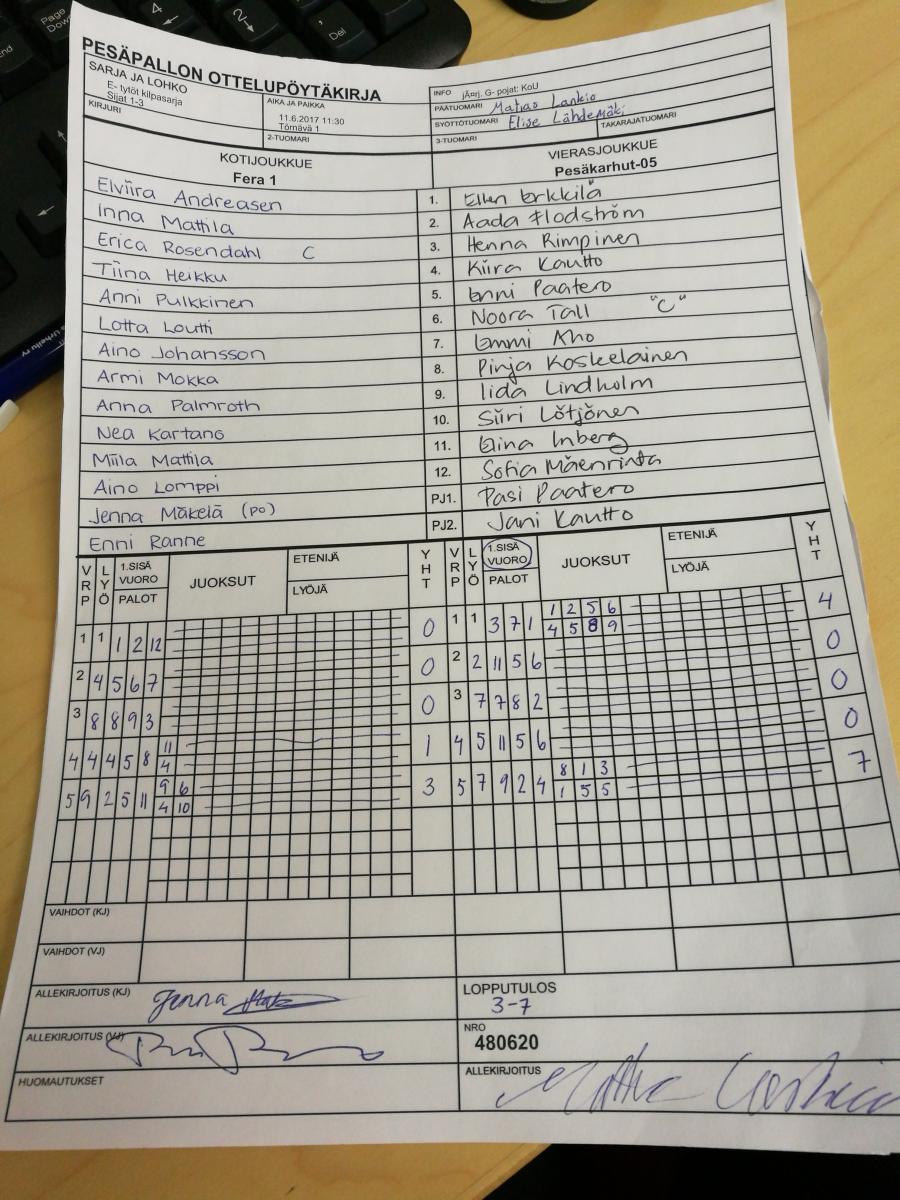 PESÄPALLON OTTELUPÖYTÄKIRJA
SARJA JA LOHKO
E- tytöt kilpasarja
Sijat 1-3
KIRJURI
AIKA JA PAIKKA
11.6.2017 11:30
Törnävä 1
2-TUOMARI
INFO jÄ¤rj. G- pojat: KoU
PÄÄTUOMARI Matias Lankio
SYÖTTÖTUOMARI Elise Lähdemäki TAKARAJATUOMARI
3-TUOMARI
KOTIJOUKKUE VIERASJOUKKUE
Fera 1 Pesäkarhut-05
Elviira Andreasen 1. Ellen Erkkilä
Inna Mattila 2. Aada Flodström
Erica Rosendahl C 3. Henna Rimpinen
Tiina Heikku 4. Kiira Kautto
Anni Pulkkinen 5. Enni Paatero
Lotta Loutti 6. Noora Tall "C"
Aino Johansson 7. Emmi Aho
Armi Mokka 8. Pinja Koskelainen
Anna Palmroth 9. Iida Lindholm
Nea Kartano 10. Siiri Lötjönen
Miila Mattila 11. Elina Inberg
Aino Lomppi 12. Sofia Mäenrinta
Jenna Mäkelä (po) PJ1. Pasi Paatero
Enni Ranne PJ2. Jani Kautto
VRP LYÖ 1.SISÄ VUORO PALOT JUOKSUT ETENIJÄ LYÖJÄ YHT VRP LYÖ 1.SISÄ VUORO PALOT JUOKSUT ETENIJÄ LYÖJÄ YHT
1 1 1 2 12 0 1 1 3 7 1 1 2 5 6 4
4 5 8 9
2 4 5 6 7 0 2 2 11 5 6 0
3 8 8 9 3 0 3 7 7 8 2 0
4 4 4 5 8 11 1 4 5 11 5 6 0
4
5 9 2 5 11 9 6 3 5 7 9 2 4 8 1 3 7
4 10 1 5 5
VAIHDOT (KJ)
VAIHDOT (VJ)
ALLEKIRJOITUS (KJ) Jenna
LOPPUTULOS
3-7
ALLEKIRJOITUS (VJ)
NRO
480620
HUOMAUTUKSET
ALLEKIRJOITUS